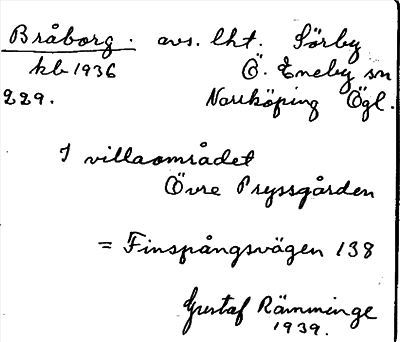 Bråborg. avs. lht. Sörby
kb 1936 Ö. Eneby sn
229. Norrköping Ögl.
I villaområdet
Övre Pryssgården
= Finspångsvägen 138
Gustaf Rämminge
1939.